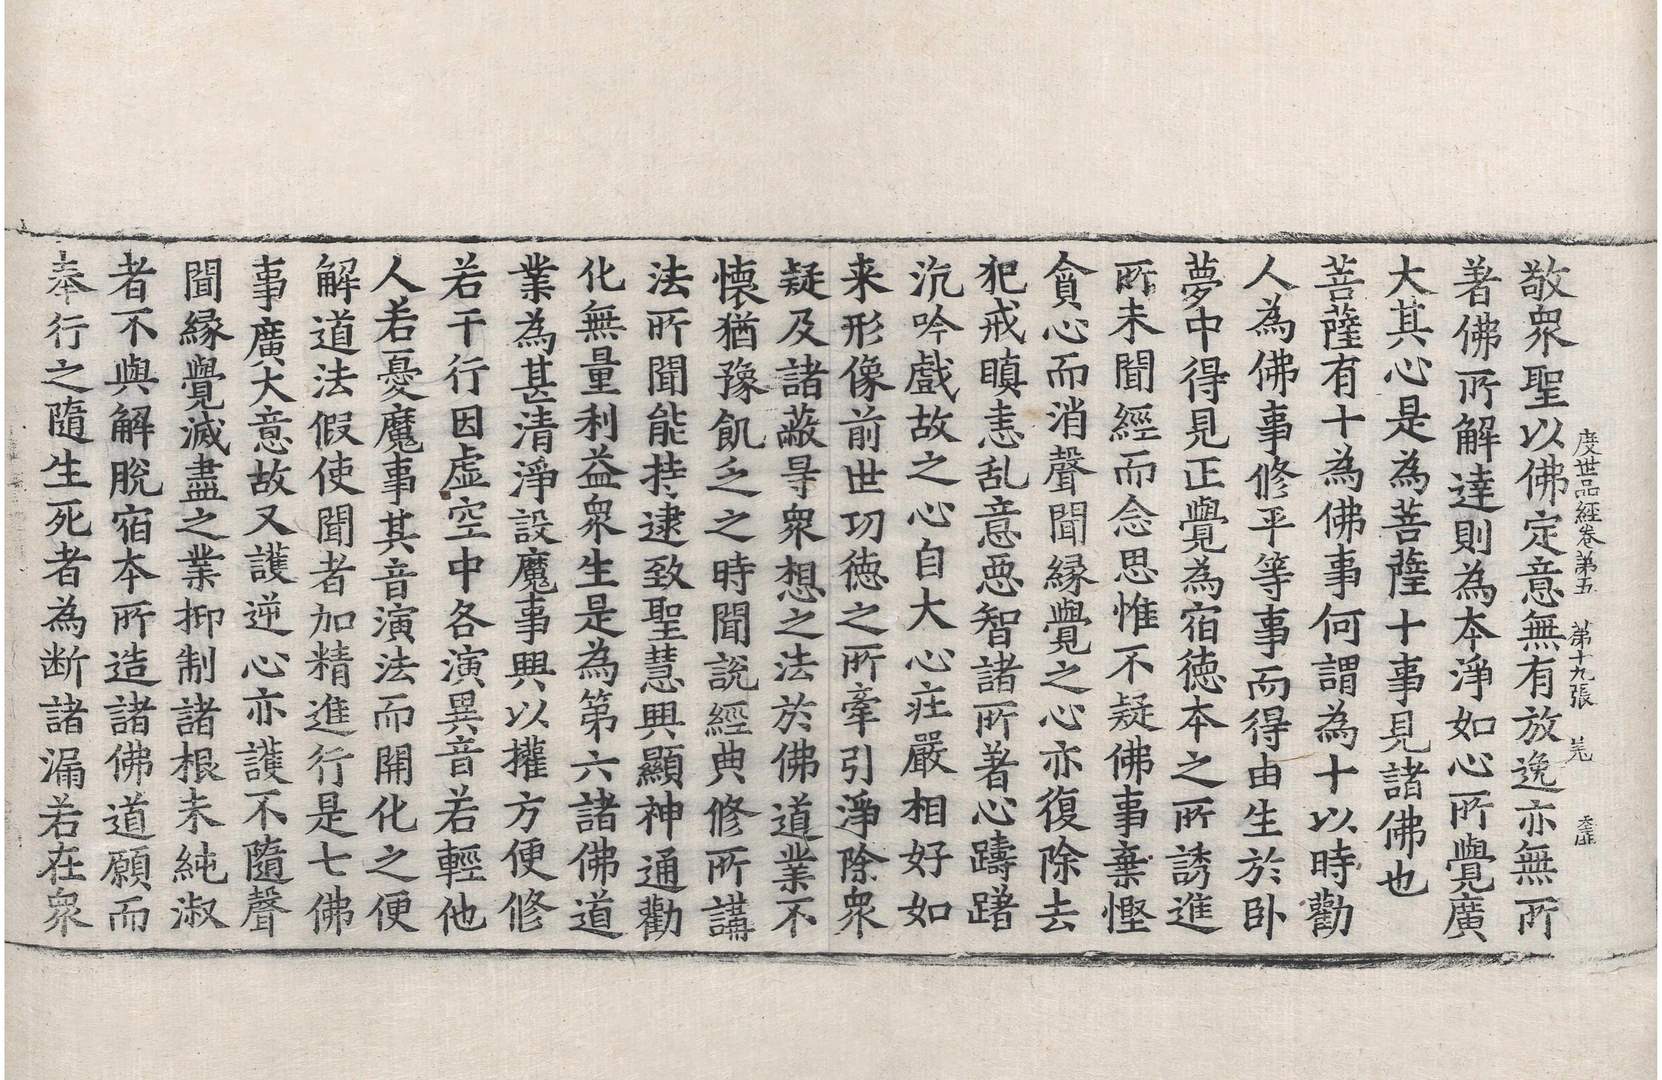 度世品經卷第五　第十九張　羌
敬衆聖以佛定意無有放逸亦無所
著佛所解達則為本淨如心所覺廣
大其心是為菩薩十事見諸佛也
菩薩有十為佛事何謂為十以時勸
人為佛事修平等事而得由生於卧
夢中得見正覺為宿德本之所誘進
所未聞經而念思惟不疑佛事棄慳
貪心而消聲聞緣覺之心亦復除去
犯戒瞋恚乱意惡智諸所著心躊躇
沉吟戲故之心自大心莊嚴相好如
来形像前世功德之所牽引淨除衆
疑及諸蔽㝵衆想之法於佛道業不
懷猶豫飢乏之時聞說經典修所講
法所聞能持逮致聖慧興顯神通勸
化無量利益衆生是為第六諸佛道
業為甚清淨設魔事興以權方便修
若干行因虚空中各演異音若輕他
人若憂魔事其音演法而開化之便
解道法假使聞者加精進行是七佛
事廣大意故又護逆心亦護不隨聲
聞緣覺滅盡之業抑制諸根未純淑
者不與解脫宿本所造諸佛道願而
奉行之隨生死者為断諸漏若在衆